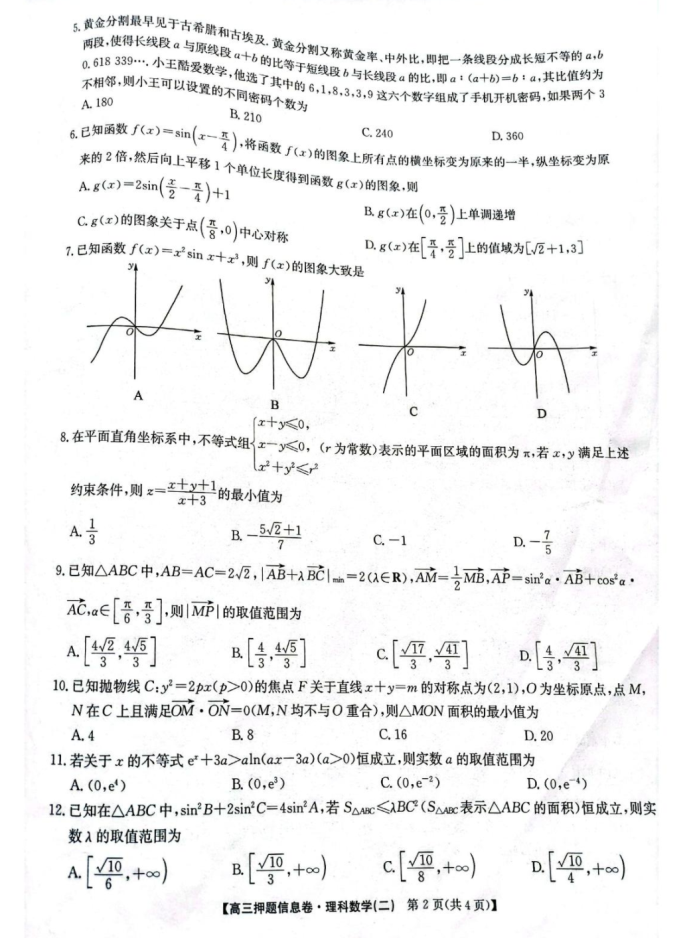 5.黄金分割最早见于古希腊和古埃及.黄金分割又称黄金率、中外比,即把一条线段分成长短不等的a,b
两段,使得长线段a与原线段a+b的比等于短线段b与长线段a的比,即a:(a+b)=b:a,其比值约为
0.618 339….小王酷爱数学,他选了其中的6,1,8,3,3,9这六个数字组成了手机开机密码,如果两个3
不相邻,则小王可以设置的不同密码个数为
A.180 B.210 C.240 D.360
6.已知函数f(x)=sin(x-π/4),将函数f(x)的图象上所有点的横坐标变为原来的一半,纵坐标变为原
来的2倍,然后向上平移1个单位长度得到函数g(x)的图象,则
A.g(x)=2sin(x/2-π/4)+1 B.g(x)在(0,π/2)上单调递增
C.g(x)的图象关于点(π/8,0)中心对称 D.g(x)在[π/4,π/2]上的值域为[√2+1,3]
7.已知函数f(x)=x²sin x+x³,则f(x)的图象大致是
y y y y
O x O x O x O x
A B C D
8.在平面直角坐标系中,不等式组{x+y≤0, x-y≤0, x²+y²≤r² (r为常数)表示的平面区域的面积为π,若x,y满足上述
约束条件,则z=(x+y+1)/(x+3)的最小值为
A.1/3 B.-(5√2+1)/7 C.-1 D.-7/5
9.已知△ABC中,AB=AC=2√2,|AB→+λBC→|min=2(λ∈R),AM→=1/2MB→,AP→=sin²α·AB→+cos²α·
AC→,α∈[π/6,π/3],则|MP→|的取值范围为
A.[4√2/3,4√5/3] B.[4/3,4√5/3] C.[√17/3,√41/3] D.[4/3,√41/3]
10.已知抛物线C:y²=2px(p>0)的焦点F关于直线x+y=m的对称点为(2,1),O为坐标原点,点M,
N在C上且满足OM→·ON→=0(M,N均不与O重合),则△MON面积的最小值为
A.4 B.8 C.16 D.20
11.若关于x的不等式eˣ+3a>aln(ax-3a)(a>0)恒成立,则实数a的取值范围为
A.(0,e⁴) B.(0,e³) C.(0,e⁻²) D.(0,e⁻⁴)
12.已知在△ABC中,sin²B+2sin²C=4sin²A,若S△ABC≤λBC²(S△ABC表示△ABC的面积)恒成立,则实
数λ的取值范围为
A.[√10/6,+∞) B.[√10/3,+∞) C.[√10/8,+∞) D.[√10/4,+∞)
【高三押题信息卷·理科数学(二) 第2页(共4页)】